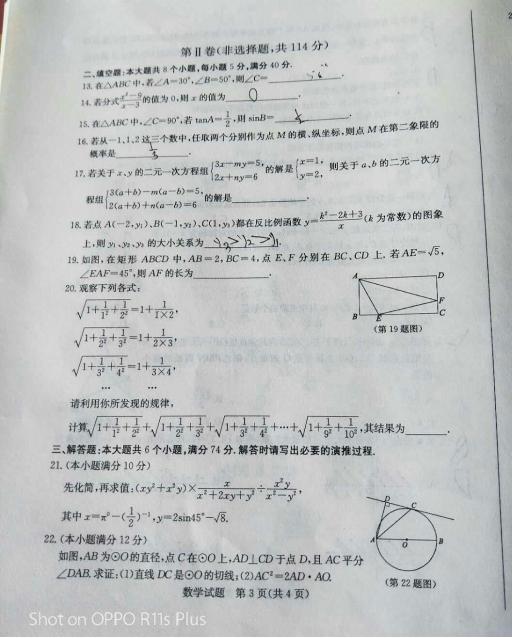 第Ⅱ卷(非选择题,共 114 分)
二、填空题:本大题共 8 个小题,每小题 5 分,满分 40 分.
13. 在△ABC 中,若∠A=30°,∠B=50°,则∠C=
14. 若分式(x²-9)/(x-3)的值为 0,则 x 的值为 0
15. 在△ABC 中,∠C=90°,若 tanA=1/2,则 sinB=
16. 若从-1,1,2 这三个数中,任取两个分别作为点 M 的横、纵坐标,则点 M 在第二象限的
概率是 1/3.
17. 若关于 x、y 的二元一次方程组{3x-my=5, 2x+ny=6 的解是{x=1, y=2, 则关于 a、b 的二元一次方
程组{3(a+b)-m(a-b)=5, 2(a+b)+n(a-b)=6 的解是
18. 若点 A(-2,y₁)、B(-1,y₂)、C(1,y₃)都在反比例函数 y=(k²-2k+3)/x (k 为常数)的图象
上,则 y₁、y₂、y₃ 的大小关系为 y₃>y₂>y₁.
19. 如图,在矩形 ABCD 中,AB=2,BC=4,点 E、F 分别在 BC、CD 上,若 AE=√5,
∠EAF=45°,则 AF 的长为
A D F B E C
(第 19 题图)
20. 观察下列各式:
√(1+1/1²+1/2²)=1+1/(1×2),
√(1+1/2²+1/3²)=1+1/(2×3),
√(1+1/3²+1/4²)=1+1/(3×4),
… …
请利用你所发现的规律,
计算√(1+1/1²+1/2²)+√(1+1/2²+1/3²)+√(1+1/3²+1/4²)+…+√(1+1/9²+1/10²),其结果为
三、解答题:本大题共 6 个小题,满分 74 分. 解答时请写出必要的演推过程.
21. (本小题满分 10 分)
先化简,再求值:(xy²+x²y)×x/(x²+2xy+y²)÷x²y/(x²-y²),
其中 x=π⁰-(1/2)⁻¹,y=2sin45°-√8.
22. (本小题满分 12 分)
如图,AB 为⊙O 的直径,点 C 在⊙O 上,AD⊥CD 于点 D,且 AC 平分
∠DAB. 求证:(1)直线 DC 是⊙O 的切线;(2)AC²=2AD·AO.
D C A O B
(第 22 题图)
数学试题 第 3 页(共 4 页)
Shot on OPPO R11s Plus